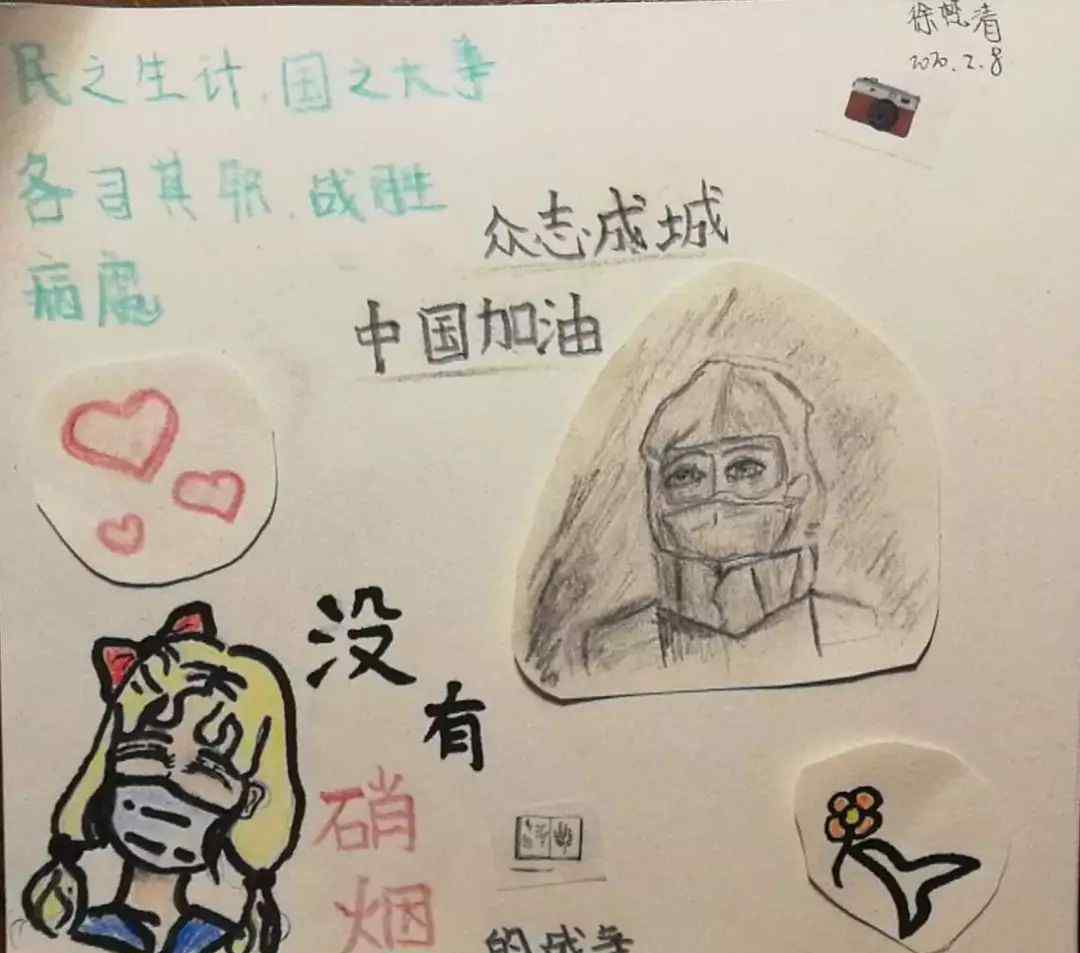 2020.2.8
民之生计,国之大事
各司其职,战胜
病魔
众志成城
中国加油
没
有
硝
烟
的战争